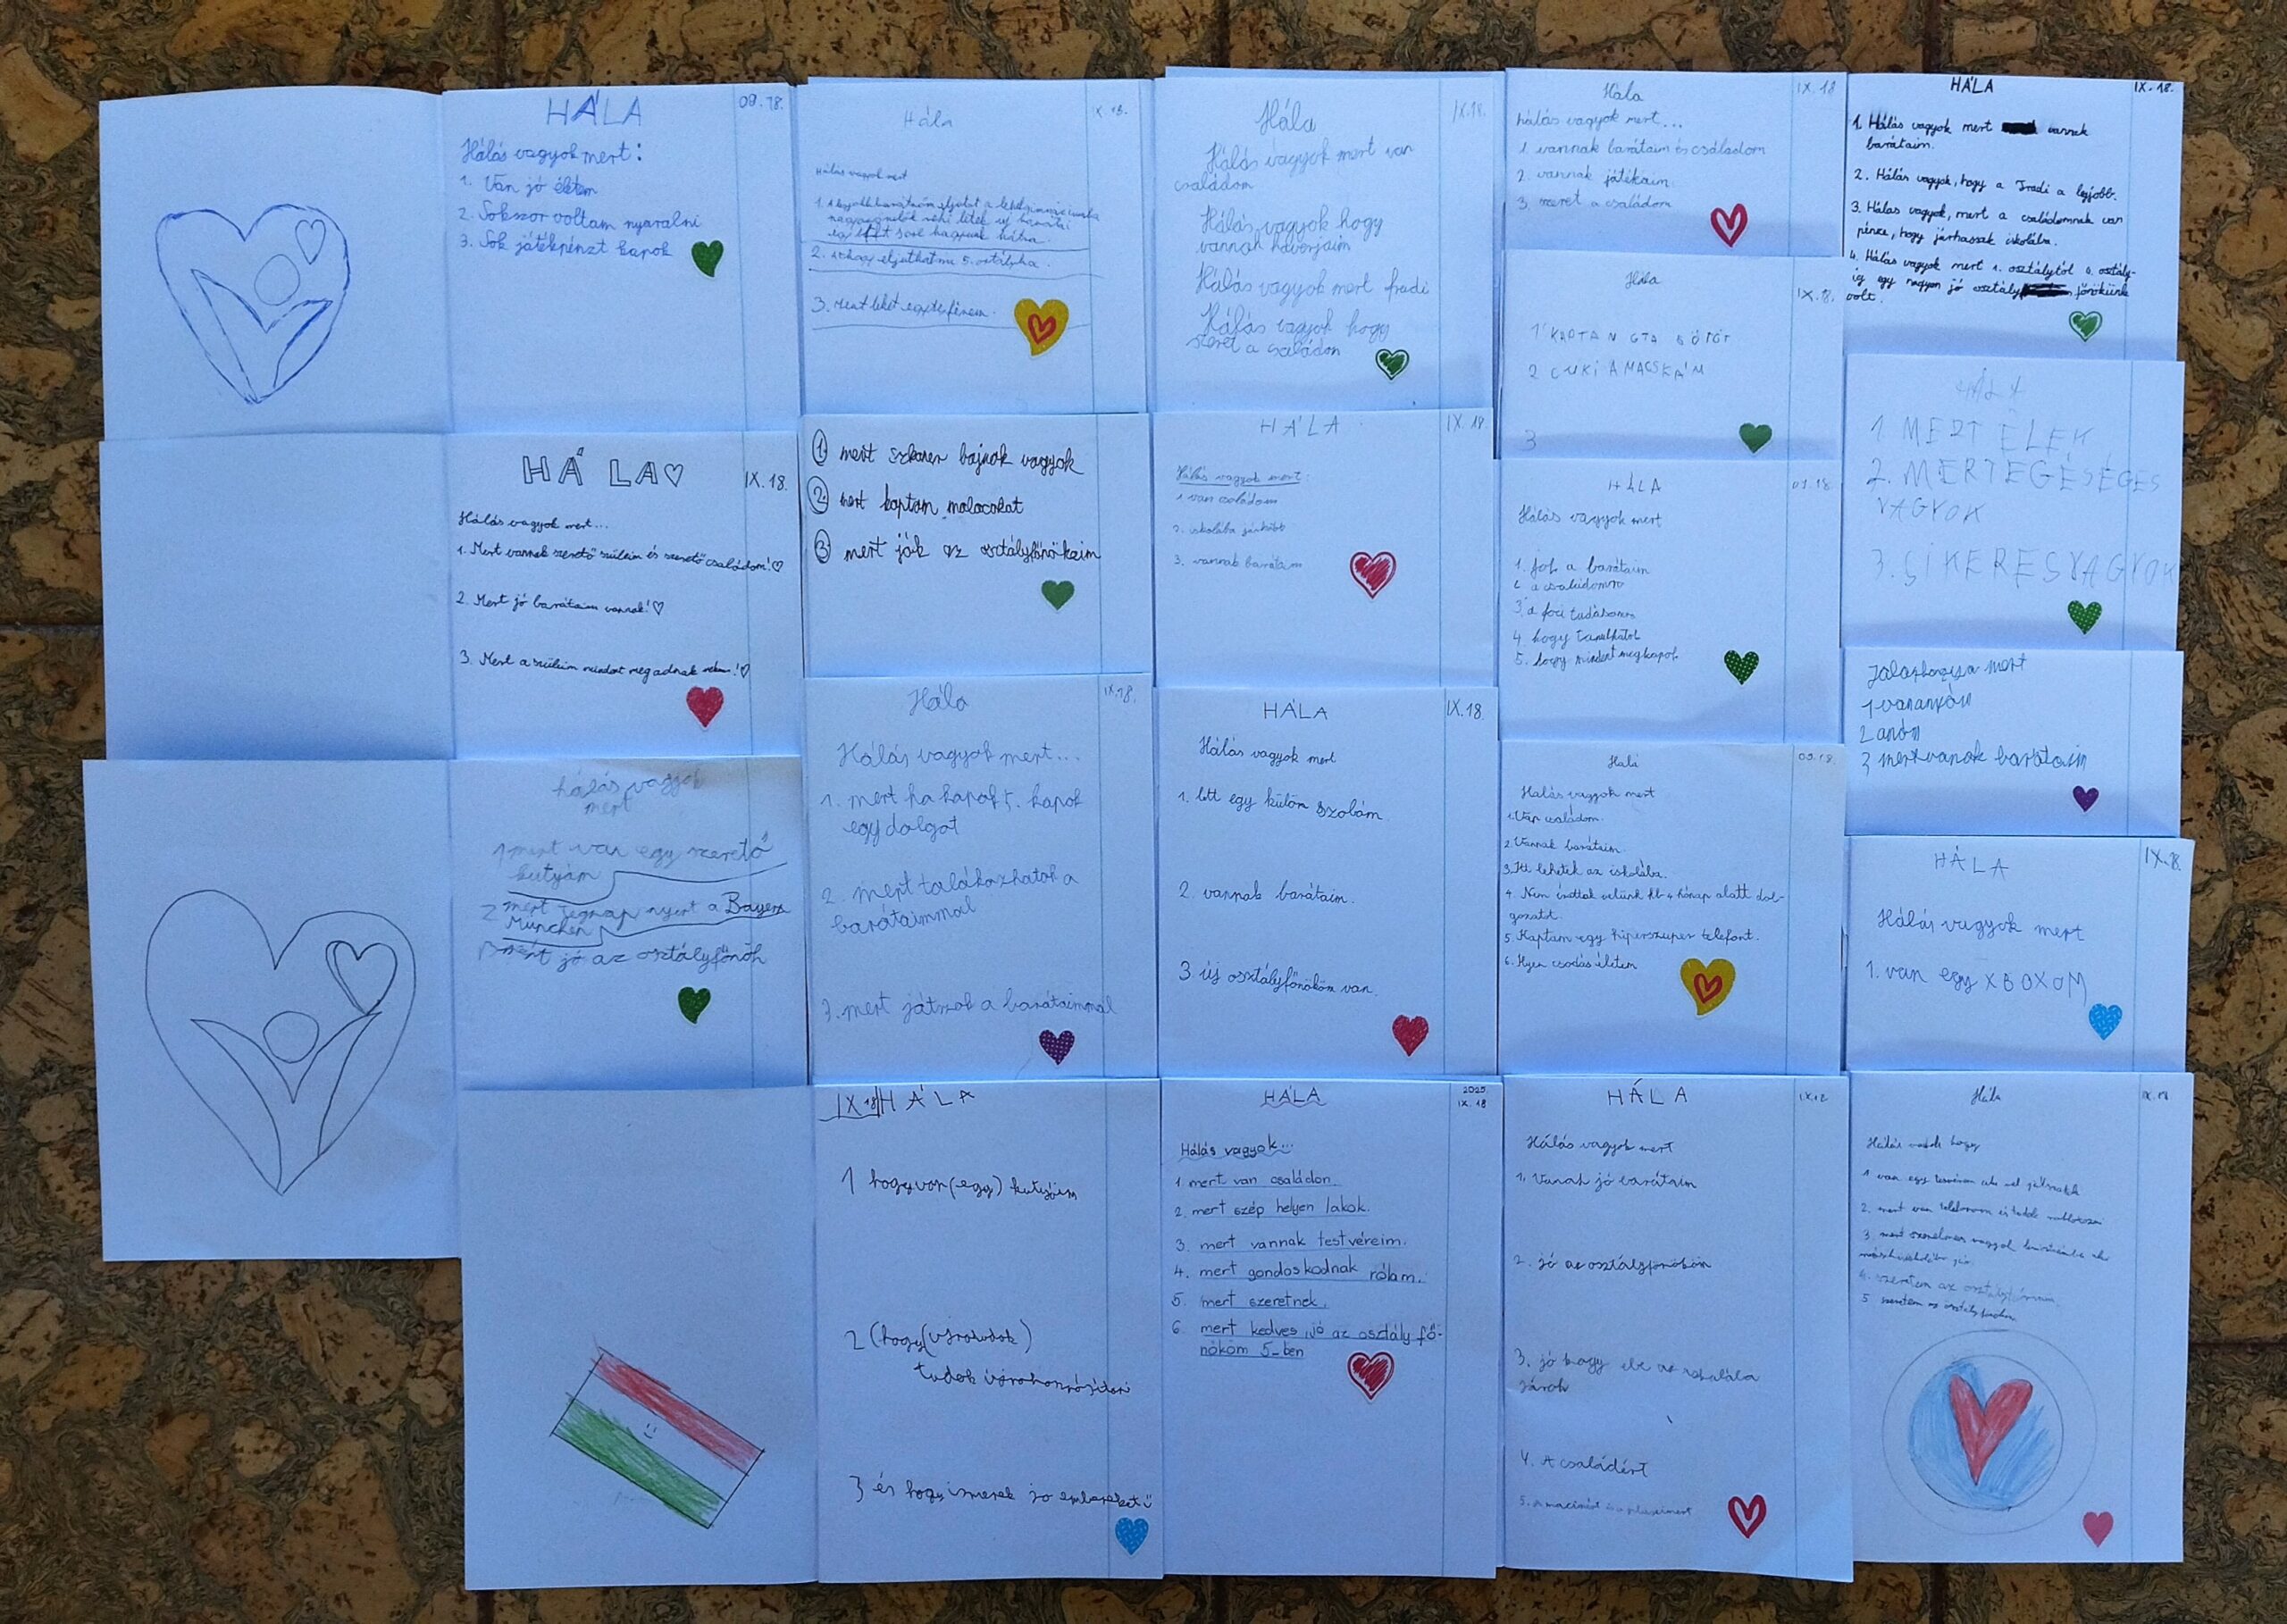 HÁLA
09.18.
Hálás vagyok mert:
1. Van jó életem
2. Sokszor voltam nyaralni
3. Sok játékpénzt kapok
HÁLA♡
IX.18.
Hálás vagyok mert...
1. Mert vannak szerető szüleim és szerető családom!♡
2. Mert jó barátaim vannak!♡
3. Mert a szüleim mindent megadnak nekem!♡
hálás vagyok
mert
1 mert van egy szerető
kutyám
2 mert tegnap nyert a Bayern
München
3 mert jó az osztályfőnök
Hála
IX 18.
Hálás vagyok mert
3. Mert lehet egy telefonom.
① mert szkander bajnok vagyok
② mert kaptam malacokat
③ mert jók az osztályfőnökeim
Hála
IX.18.
Hálás vagyok mert...
1. mert ha kapok 5. kapok
egy dolgot
2. mert találkozhatok a
barátaimmal
3. mert játszok a barátaimmal
IX 18 HÁLA
1 hogy van (egy) kutyáim
2 (hogy
tudok
3 és hogy ismerek jo embereket
Hála
IX.18.
Hálás vagyok mert van
családom
Hálás vagyok hogy
vannak haverjaim
Hálás vagyok mert fradi
Hálás vagyok hogy
szeret a családom
HÁLA
IX.18
Hálás vagyok mert:
1 van családom
2. iskolába
3. vannak barátaim
HÁLA
IX.18.
Hálás vagyok mert
1. lett egy külön szobám.
2. vannak barátaim.
3 új osztályfőnököm van.
HÁLA
2025.
IX. 18
Hálás vagyok...
1. mert van családom.
2. mert szép helyen lakok.
3. mert vannak testvéreim.
4. mert gondoskodnak rólam.
5. mert szeretnek.
6. mert kedves, jó az osztály fő-
nököm 5-ben
Hála
IX.18
hálás vagyok mert...
1. vannak barátaim és családom
2. vannak játékaim
3. szeret a családom
Hála
IX.18.
1 KAPTAM GTA 5ÖTÖT
2 CUKI A MACSKÁM
3
HÁLA
Hálás vagyok mert
1. jok a barátaim
2 a családomra
3 a foci tudásomra
4 hogy tanulhatok
5. hogy mindent megkapok
Hála
09.18.
Hálás vagyok mert
1. Van családom.
2. Vannak barátaim.
3. Itt lehetek az iskolába.
4. Nem írattak velünk kb 4 hónap alatt dol-
gozatot.
5. Kaptam egy hiperszuper telefont.
6. Ilyen csodás életem
HÁLA
Hálás vagyok mert
1. Vanak jó barátaim
2. jó az osztályfönököm
3. jó hogy ebe az iskolába
járok
4. A családért
HÁLA
IX.18.
1. Hálás vagyok mert vannak
barátaim.
2. Hálás vagyok, hogy a Fradi a legjobb.
3. Hálás vagyok, mert a családomnak van
pénze, hogy járhassak iskolába.
4. Hálás vagyok mert 1. osztálytól 4. osztály-
ig egy nagyon jó osztály főnökünk
volt.
HÁLA
1. MERT ÉLEK
2. MERT EGÉSÉGES
VAGYOK
3. SIKERES VAGYOK
mert
1 van anyám
2 apám
3 mert vanak barátaim
HÁLA
IX.18.
Hálás vagyok mert
1. van egy XBOXOM
Hála
IX. 18.
Hálás vagyok hogy
1 van egy
2. mert van telefonom és tudok
3. mert szerelmes vagyok
4. szeretem az
5 szeretem az